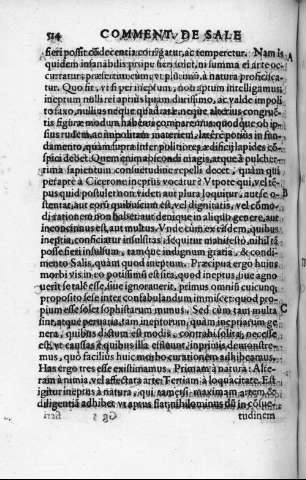 514 COMMENT. DE SALE
fieri possit cōdecentia corrigatur, ac temperetur. Nam is
quidem insanabilis prope fieri solet, ni summa ei arte oc-
curratur: præsertim cum, vt plurimū, à natura proficisca-
tur. Quo fit, vt si per ineptum, nō aptum intelligamus:
ineptum nulli rei aptius quam durissimo, ac valde impoli
to saxo, nullius neque quadratæ, neque alterius congruē-
tis figuræ modum habēti comparemus: quodque ob ip-
sius rudem, ac impolitam materiem, latere potius in fun-
damento, quàm supra inter politiores ædificij lapides cō-
spici debet. Quem enim abscondi magis, atque à pulcher-
rima sapientum consuetudine repelli decet, quàm qui
persæpe à Cicerone ineptis vocatur? Vtpote qui, vel tē-
pus quid postulet non videt: aut plura loquitur, aut se o-
stentat, aut eorū quibuscum est, vel dignitatis, vel cōmo-
di rationem non habet: aut denique in aliquo genere, aut
inconcinnus est, aut multus. Vnde cum ex eisdem, quibus
ineptia, conficiatur insulsitas: sequitur manifestò, nihil
posse fieri insulsum, tamque indignum gratia, & condi-
mento Salis, quàm quod ineptum. Præcipua ergo huius
morbi vis in eo potissimū est sita, quod ineptus, siue agno-
uerit se talē esse, siue ignorauerit, primus omniū cuicunq;
proposito sese inter confabulandum immiscet: quod pro-
pium esse solet sophistarum munus. Sed cùm tam multa
sint, atque peruaria, tam ineptorum, quàm ineptiarum ge-
nera, quibus dictum est modis, contrahi solita: necesse
est, vt caussas è quibus illa est, in primis demonstre-
mus, quò facilius huic morbo curationem adhibeamus.
Has ergo tres esse existimamus. Primam à natura: Alte-
ram à nimia, vel affectata arte: Tertiam à loquacitate. Est
igitur ineptus à natura, qui, tametsi maximam artem &
diligentiā adhibet vt aptus fiat, nihilominus dū in cōsue-
tudinem
B
C